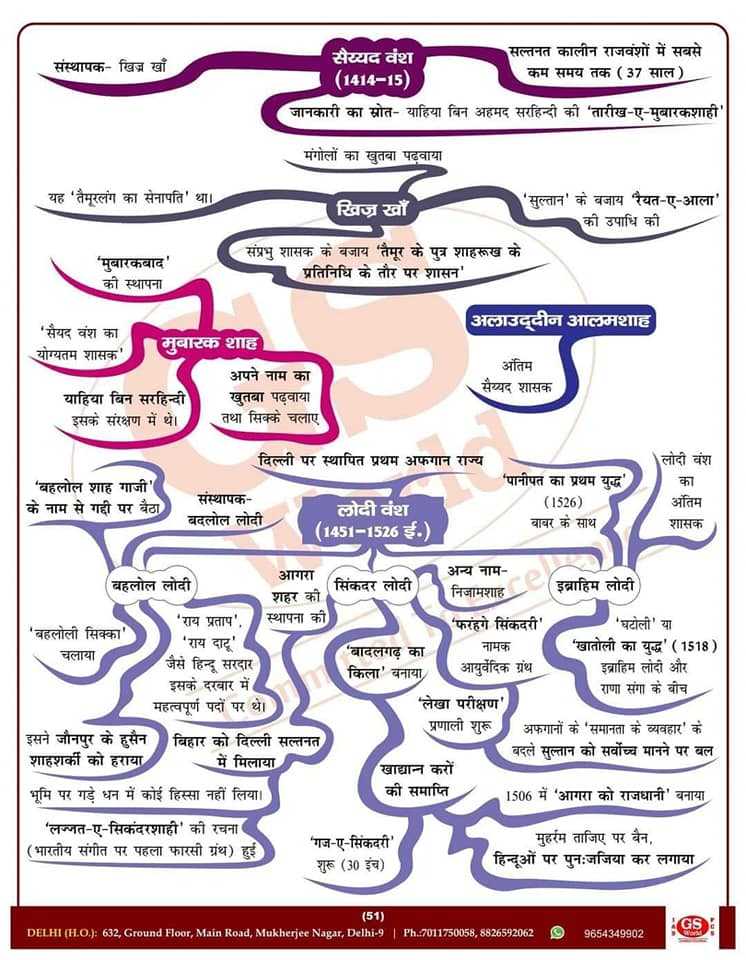 सैय्यद वंश
(1414-15)
संस्थापक- खिज्र खाँ
सल्तनत कालीन राजवंशों में सबसे
कम समय तक (37 साल)
जानकारी का स्रोत- याहिया बिन अहमद सरहिन्दी की 'तारीख-ए-मुबारकशाही'
मंगोलों का खुतबा पढ़वाया
यह 'तैमूरलंग का सेनापति' था।
खिज्र खाँ
'सुल्तान' के बजाय 'रैयत-ए-आला'
की उपाधि की
संप्रभु शासक के बजाय 'तैमूर के पुत्र शाहरूख के
प्रतिनिधि के तौर पर शासन'
'मुबारकबाद'
की स्थापना
'सैयद वंश का
योग्यतम शासक'
मुबारक शाह
याहिया बिन सरहिन्दी
इसके संरक्षण में थे।
अपने नाम का
खुतबा पढ़वाया
तथा सिक्के चलाए
अलाउद्दीन आलमशाह
अंतिम
सैय्यद शासक
दिल्ली पर स्थापित प्रथम अफगान राज्य
'बहलोल शाह गाजी'
के नाम से गद्दी पर बैठा
संस्थापक-
बदलोल लोदी
लोदी वंश
(1451-1526 ई.)
'पानीपत का प्रथम युद्ध'
(1526)
बाबर के साथ
लोदी वंश
का
अंतिम
शासक
बहलोल लोदी
आगरा
शहर की
स्थापना की
सिंकदर लोदी
अन्य नाम-
निजामशाह
इब्राहिम लोदी
'बहलोली सिक्का'
चलाया
'राय प्रताप',
'राय दाटू'
जैसे हिन्दू सरदार
इसके दरबार में
महत्वपूर्ण पदों पर थे।
'बादलगढ़ का
किला' बनाया
'फरहंगे सिकंदरी'
नामक
आयुर्वेदिक ग्रंथ
'घटोली' या
'खातोली का युद्ध' (1518)
इब्राहिम लोदी और
राणा सांगा के बीच
'लेखा परीक्षण'
प्रणाली शुरू
इसने जौनपुर के हुसैन
शाहशर्की को हराया
बिहार को दिल्ली सल्तनत
में मिलाया
अफगानों के 'समानता के व्यवहार' के
बदले सुल्तान को सर्वोच्च मानने पर बल
खाद्यान्न करों
की समाप्ति
भूमि पर गड़े धन में कोई हिस्सा नहीं लिया।
1506 में 'आगरा को राजधानी' बनाया
'लज्जत-ए-सिकंदरशाही' की रचना
(भारतीय संगीत पर पहला फारसी ग्रंथ) हुई
'गज-ए-सिकंदरी'
शुरू (30 इंच)
मुहर्रम ताजिए पर बैन,
हिन्दूओं पर पुन:जजिया कर लगाया
GS
World
Committed To Excellence
(51)
DELHI (H.O.): 632, Ground Floor, Main Road, Mukherjee Nagar, Delhi-9 | Ph.:7011750058, 8826592062 9654349902
IAS GS World PCS